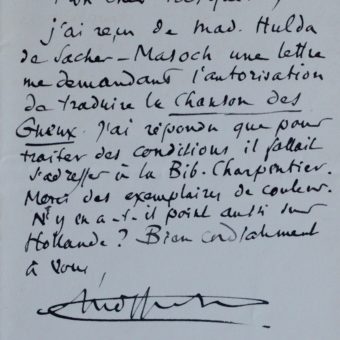 Mon cher
j'ai reçu de Mad. Hulda
de Sacher-Masoch une lettre
me demandant l'autorisation
de traduire la Chanson des
Gueux. J'ai répondu que pour
traiter des conditions il fallait
s'adresser à la Bib. Charpentier.
Merci des exemplaires de couleur.
N'y en a-t-il point aussi sur
Hollande ? Bien cordialement
à vous,